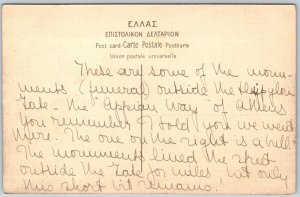 ΕΛΛΑΣ
ΕΠΙΣΤΟΛΙΚΟΝ ΔΕΛΤΑΡΙΟΝ
Post card-Carte Postale-Postkarte
Union postale universelle
These are some of the mon-
uments (funeral) outside the Dipylon
Gate. The Appian Way of Athens
You remember I told you we went
there. The one on the right is a bull.
The monuments lined the street
outside the Gate for miles but only
this short bit remains.